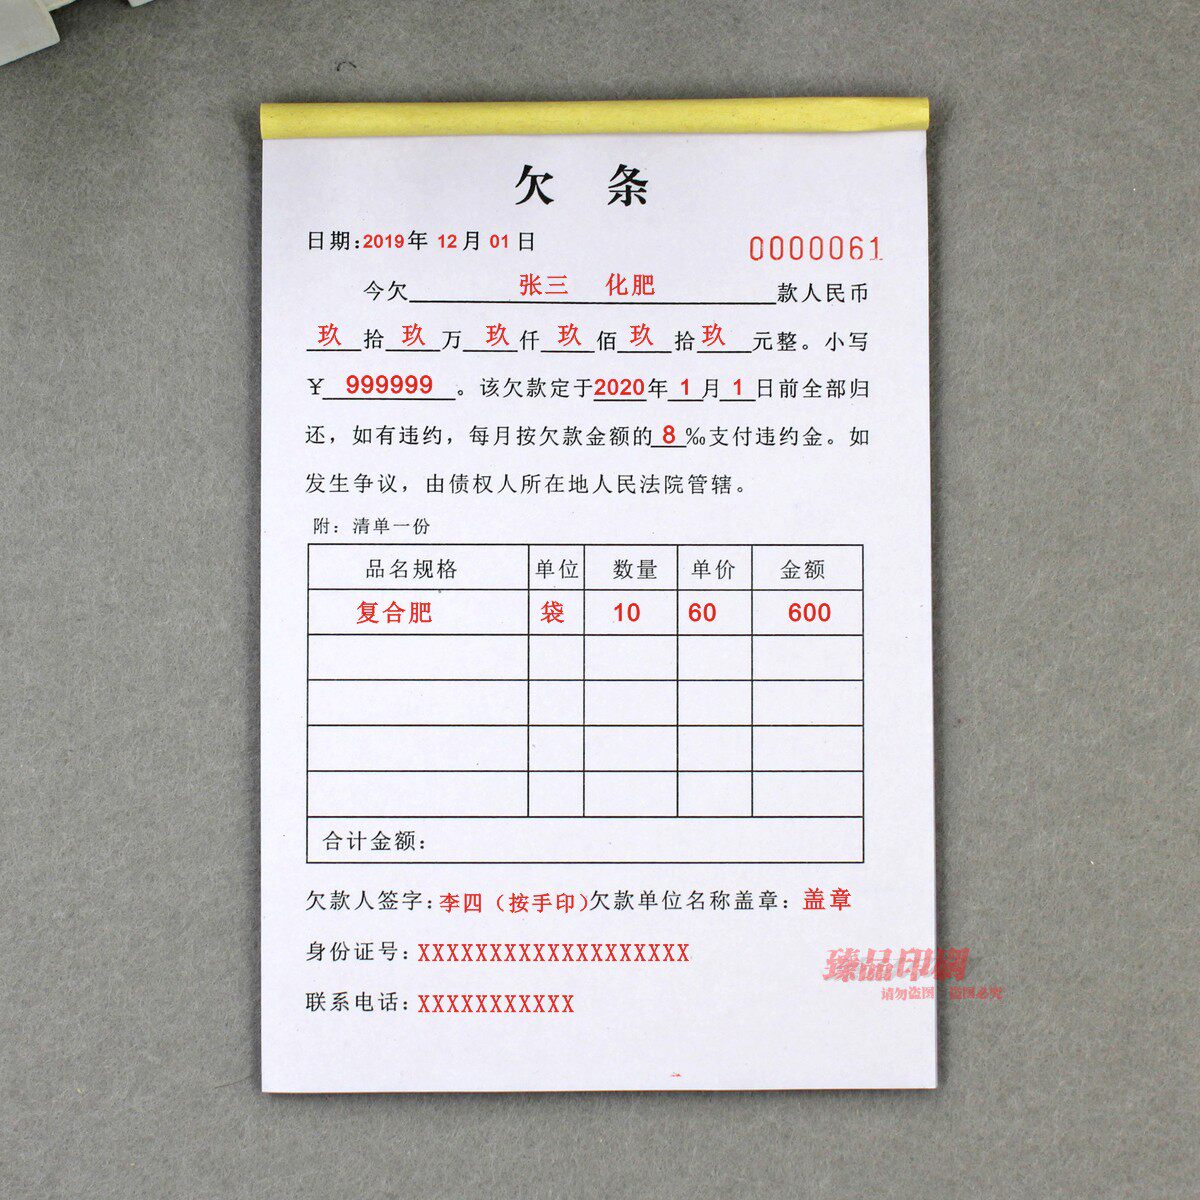 欠 条
日期:2019年 12 月 01 日
0000061
今欠 张三 化肥 款人民币
玖拾玖万玖仟玖佰玖拾玖元整。小写
¥ 999999 。该欠款定于2020年 1 月 1 日前全部归
还，如有违约，每月按欠款金额的 8 ‰支付违约金。如
发生争议，由债权人所在地人民法院管辖。
附：清单一份
品名规格 单位 数量 单价 金额
复合肥 袋 10 60 600
合计金额：
欠款人签字：李四（按手印）欠款单位名称盖章：盖章
身份证号：XXXXXXXXXXXXXXXXXXX
联系电话：XXXXXXXXXXX
臻品印刷
请勿盗图 盗图必究